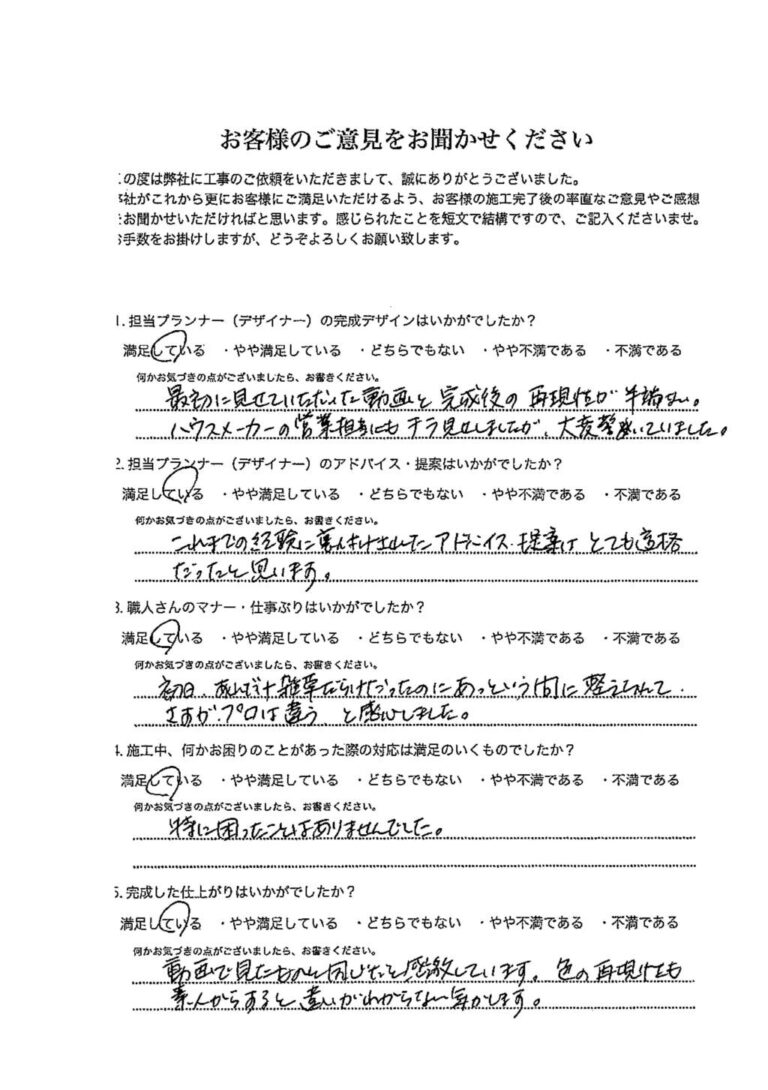 お客様のご意見をお聞かせください
の度は弊社に工事のご依頼をいただきまして、誠にありがとうございました。
社がこれから更にお客様にご満足いただけるよう、お客様の施工完了後の率直なご意見やご感想
をお聞かせいただければと思います。感じられたことを短文で結構ですので、ご記入くださいませ。
お手数をお掛けしますが、どうぞよろしくお願い致します。
1. 担当プランナー（デザイナー）の完成デザインはいかがでしたか？
満足している ・やや満足している ・どちらでもない ・やや不満である ・不満である
何かお気づきの点がございましたら、お書きください。
最初に見せていただいた動画と完成後の再現性が半端ない。
ハウスメーカーの営業担当にもチラ見せしましたが、大変驚いていました。
2. 担当プランナー（デザイナー）のアドバイス・提案はいかがでしたか？
満足している ・やや満足している ・どちらでもない ・やや不満である ・不満である
何かお気づきの点がございましたら、お書きください。
これまでの経験に裏付けされたアドバイス・提案は、とても適格
だったと思います。
3. 職人さんのマナー・仕事ぶりはいかがでしたか？
満足している ・やや満足している ・どちらでもない ・やや不満である ・不満である
何かお気づきの点がございましたら、お書きください。
初日、あれだけ雑草だらけだったのにあっという間に整えられて、
さすが、プロは違う、と感心しました。
4. 施工中、何かお困りのことがあった際の対応は満足のいくものでしたか？
満足している ・やや満足している ・どちらでもない ・やや不満である ・不満である
何かお気づきの点がございましたら、お書きください。
特に困ったことはありませんでした。
5. 完成した仕上がりはいかがでしたか？
満足している ・やや満足している ・どちらでもない ・やや不満である ・不満である
何かお気づきの点がございましたら、お書きください。
動画で見たものと同じだと感激しています。色の再現性も
素人からすると、違いがわからない気がします。